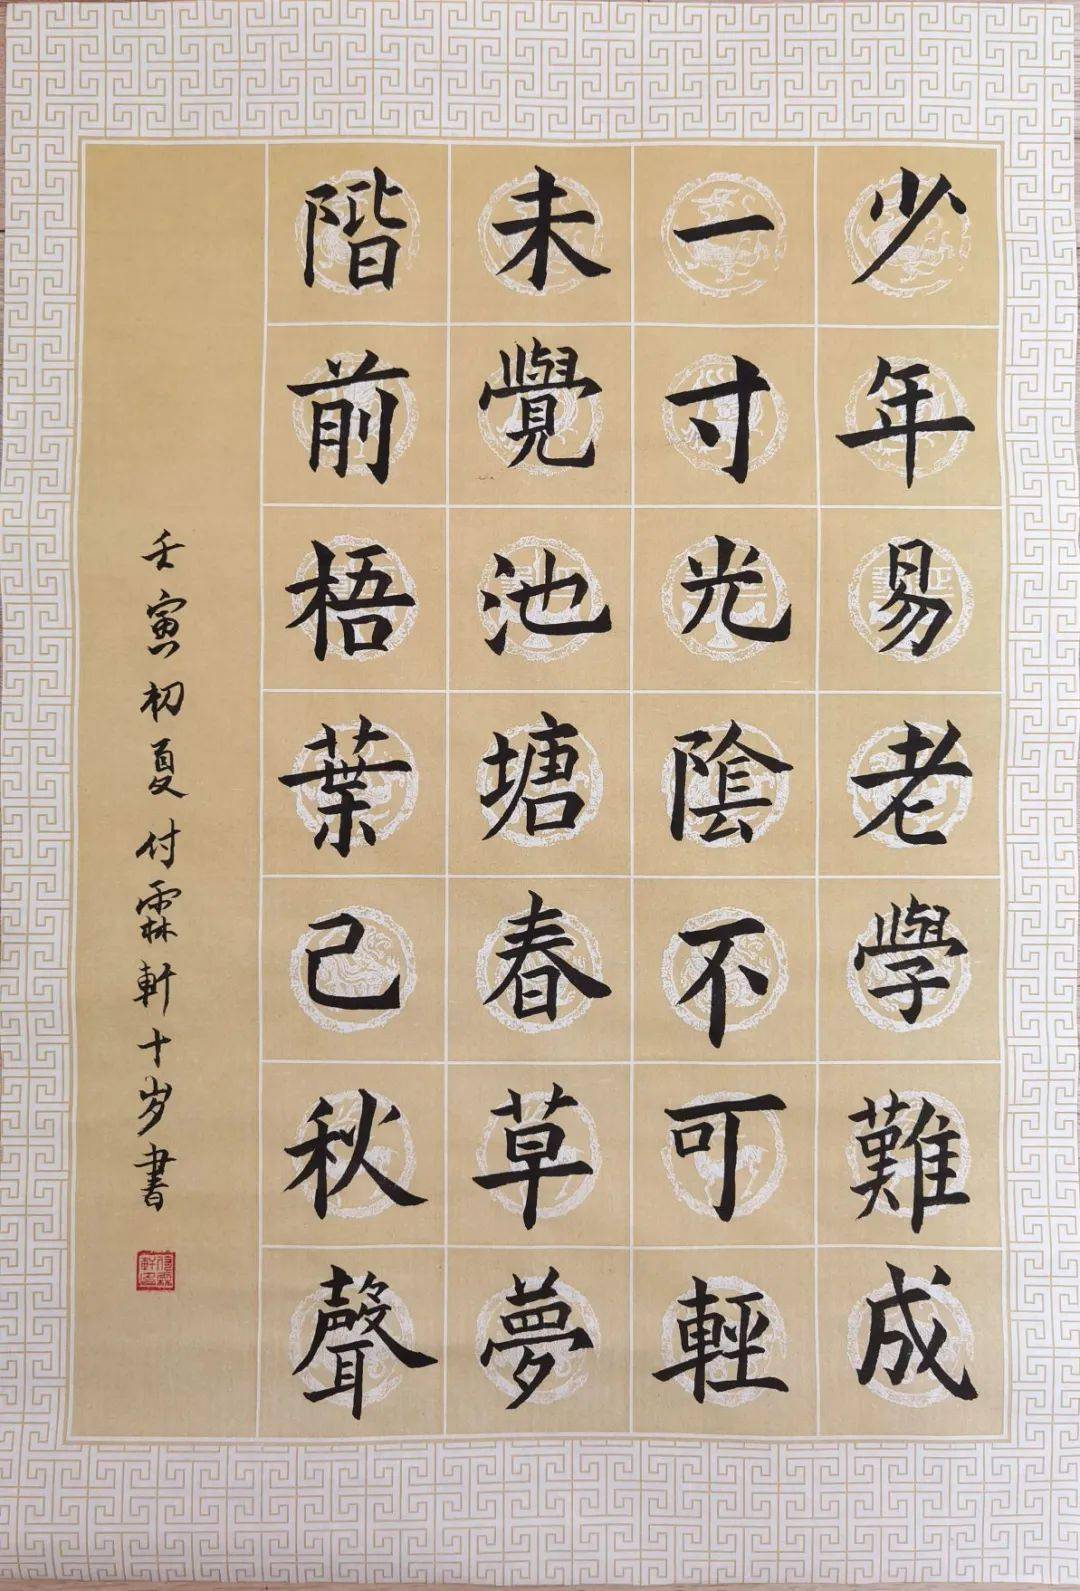 少年易老學難成
一寸光陰不可輕
未覺池塘春草夢
階前梧葉己秋聲
壬寅初夏付霖軒十岁書